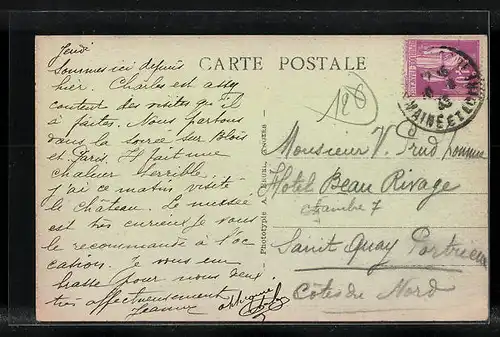 Jeudi
Sommes ici depuis
hier. Charles est assez
content des visites qu'il
a faites. Nous partons
dans la soirée sur Blois
et Paris. Il fait une
chaleur terrible.
j'ai ce matin visité
le château. Le musée
est très curieux je vous
le recommande à l'oc
casion. Je vous em
brasse pour nous deux
très affectueusement
Jeanne
CARTE POSTALE
128
MAINE ET LOIRE
Phototypie A.
Monsieur V. Prud'homme
Hotel Beau Rivage
chambre 7
Saint Quay Portrieux
Côtes du Nord